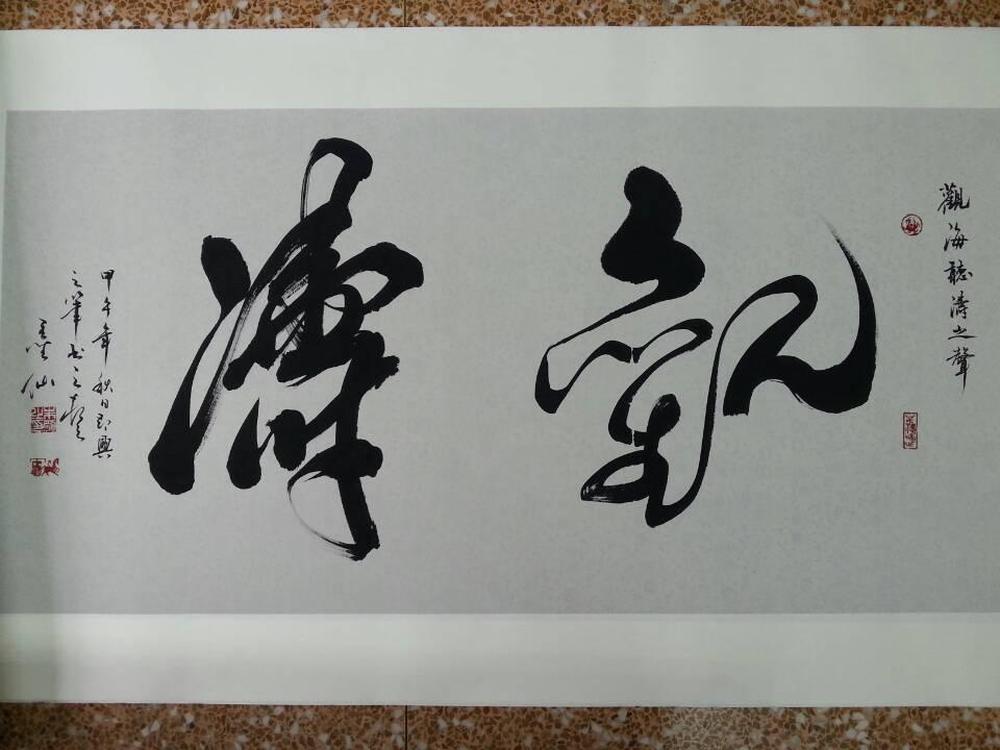 觀海聽濤之聲
觀濤
甲午年秋日即興
之筆書之
仙